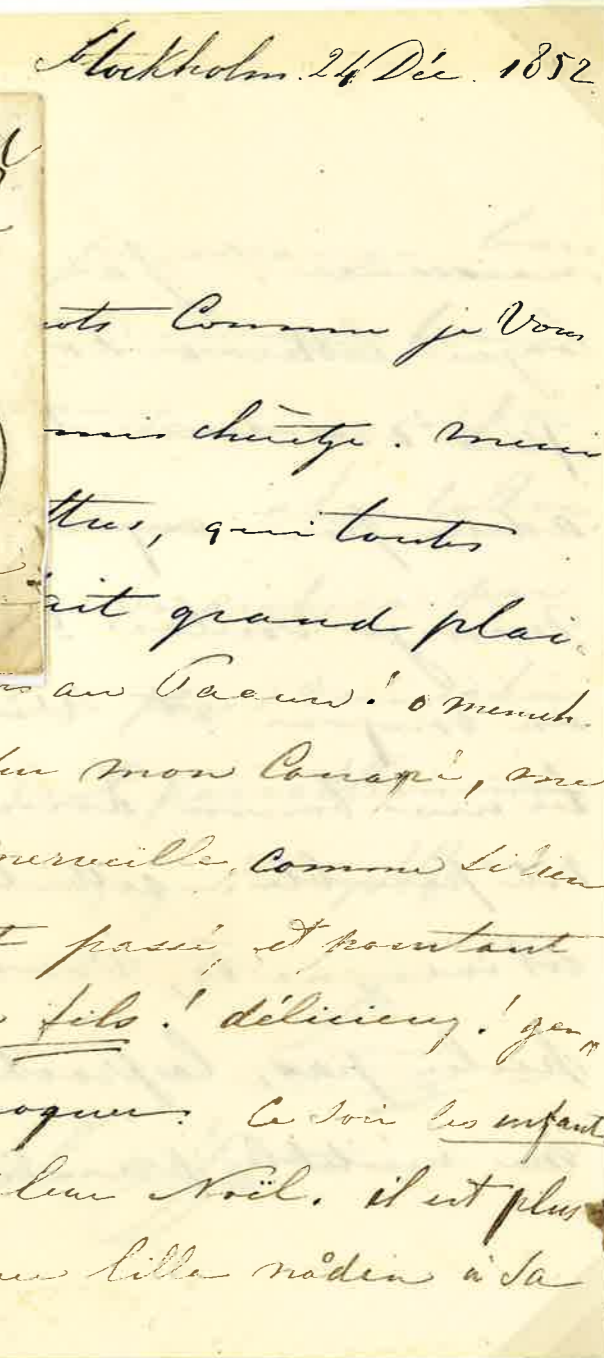 Stockholm. 24 Déc. 1852
Comme je Vous
merci
ttres, qui toutes
ait grand plai
au
mon Canapé, me
merveille, comme si rien
t passé, et pourtant
fils ! délicieux ! gen
oquer. Ce soir les enfant
leur Noël. il est plus
lille nåden à sa